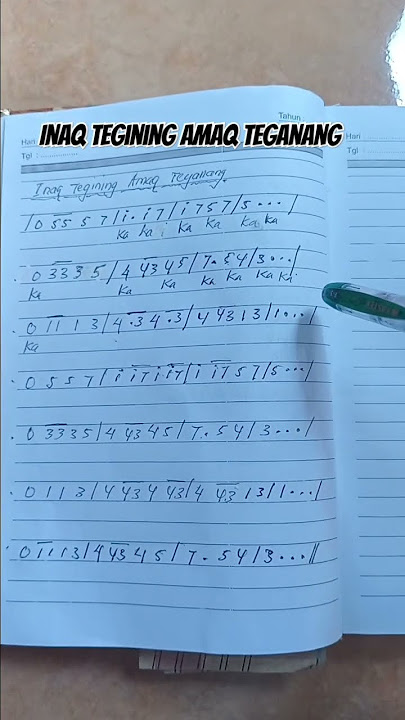 Tahun
INAQ TEGINING AMAQ TEGANANG
Hari
Hari
Tgl :
Tgl :
Inaq Tegining Amaq Teganang.
/ 0 5̅5̅ 5 7 / i . i 7 / i 7 5 7 / 5 . . . /
Ka Ka Ka Ka Ka Ka
. 0 3̅3̅ 3 5 / 4 4̅3̅ 4 5 / 7 . 5 4 / 3 . . . /
Ka Ka Ka Ka Ka Ka Ka
. 0 1̅1̅ 1 3 / 4 . 3 4 . 3 / 4 4 3 1 3 / 1 . . . /
Ka
. 0 5 5 7 / i i 7 i i 7 / i i̅7̅ 5 7 / 5 . . . /
. 0 3̅3̅ 3 5 / 4 4 3 4 5 / 7 . 5 4 / 3 . . .
. 0 1 1 3 / 4 4̅3̅ 4 4̅3̅ / 4 4̅3̅ 1 3 / 1 . . . /
. 0 1̅1̅ 1 3 / 4 4̅3̅ 4 5 / 7 . 5 4 / 3 . . . //